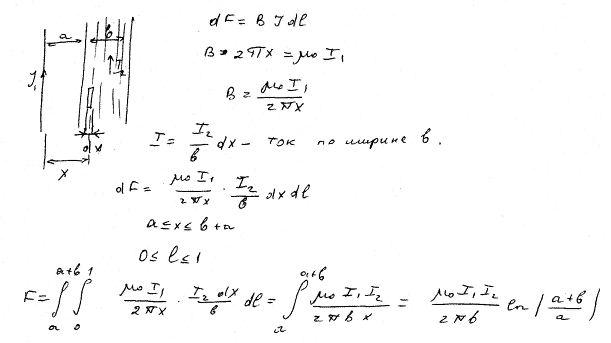 dF = B I dl
a
b
B · 2πx = μ₀ I₁
I₁
I₂
B = μ₀ I₁ / 2πx
I = I₂/b dx – ток по ширине b.
dx
x
dF = μ₀ I₁ / 2πx · I₂/b dx dl
a ≤ x ≤ b + a
0 ≤ l ≤ 1
F = ∫ₐᵃ⁺ᵇ ∫₀¹ μ₀ I₁ / 2πx · I₂ dx / b dl = ∫ₐᵃ⁺ᵇ μ₀ I₁ I₂ / 2πb x = μ₀ I₁ I₂ / 2πb ln | a+b / a |